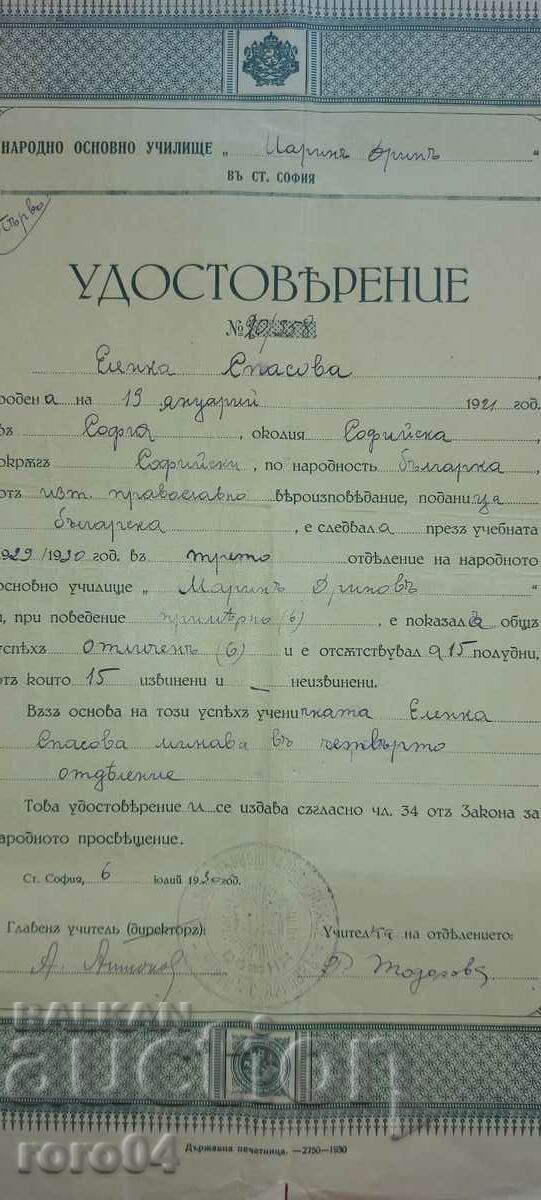 НАРОДНО ОСНОВНО УЧИЛИЩЕ „ Маринъ Дрин
ВЪ СТ. СОФИЯ
Първо
УДОСТОВѢРЕНИЕ
№ 20/558
Еленка Спасова
родена на 19 януарий 1921 год.
въ София, околия Софийска
окрѫгъ Софийски, по народность българка
отъ изт. православно вѣроизповѣдание, поданица
българска, е следвала презъ учебната
1929/1930 год. въ трето отдѣление на народното
основно училище „ Маринъ Дриновъ “
и, при поведение примѣрно (6), е показала общъ
успѣхъ отличенъ (6) и е отсѫтствувала 15 полудни,
отъ които 15 извинени и — неизвинени.
Възъ основа на този успѣхъ ученичката Еленка
Спасова минава въ четвърто
отдѣление
Това удостовѣрение ѝ се издава съгласно чл. 34 отъ Закона за
народното просвѣщение.
Ст. София, 6 юлий 1930 год.
Главенъ учитель (директоръ): Учителка на отдѣлението:
А. Антонов Тодорова
BALKAN
auction
roro04
Държавна печатница. — 2750 — 1930